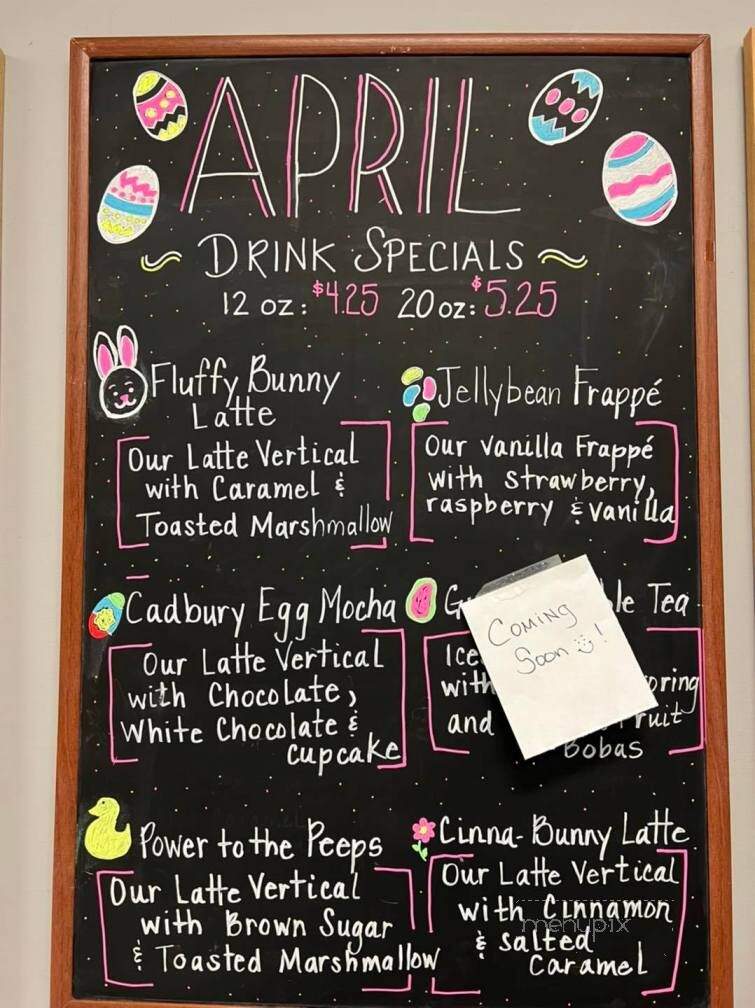 APRIL
~ DRINK SPECIALS ~
12 oz: $4.25 20oz: $5.25
Fluffy Bunny
Latte
Our Latte Vertical
with Caramel &
Toasted Marshmallow
Jellybean Frappé
Our Vanilla Frappé
with Strawberry,
raspberry & vanilla
Cadbury Egg Mocha
Our Latte Vertical
with Chocolate,
White Chocolate &
cupcake
Tea
COMING
Soon !
with
and
Bobas
Power to the Peeps
Our Latte Vertical
with Brown Sugar
& Toasted Marshmallow
Cinna-Bunny Latte
Our Latte Vertical
with Cinnamon
& Salted
Caramel
menupix